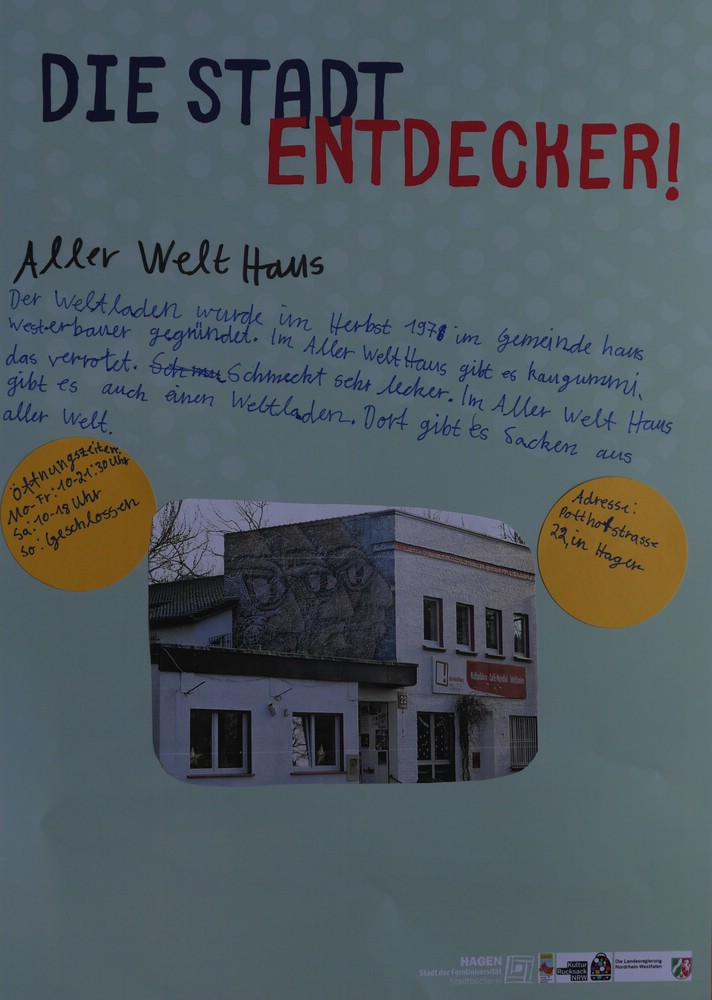 DIE STADT
ENTDECKER!
Aller Welt Haus
Der Weltladen wurde im Herbst 1978 im Gemeinde haus
Westerbauer gegründet. Im Aller Welt Haus gibt es kaugummi,
das verrotet. Schmeckt sehr lecker. Im Aller Welt Haus
gibt es auch einen Weltladen. Dort gibt es Sacken aus
aller Welt.
Öffnungszeiten:
Mo-Fr: 10-21:30 Uhr
Sa: 10-18 Uhr
So: Geschlossen
Adresse:
Potthofstrasse
22, in Hagen
Kulturbüro Café Mundial Weltladen
22
HAGEN
Stadt der FernUniversität
Stadtbücherei
Kultur
Rucksack
NRW
Die Landesregierung
Nordrhein-Westfalen